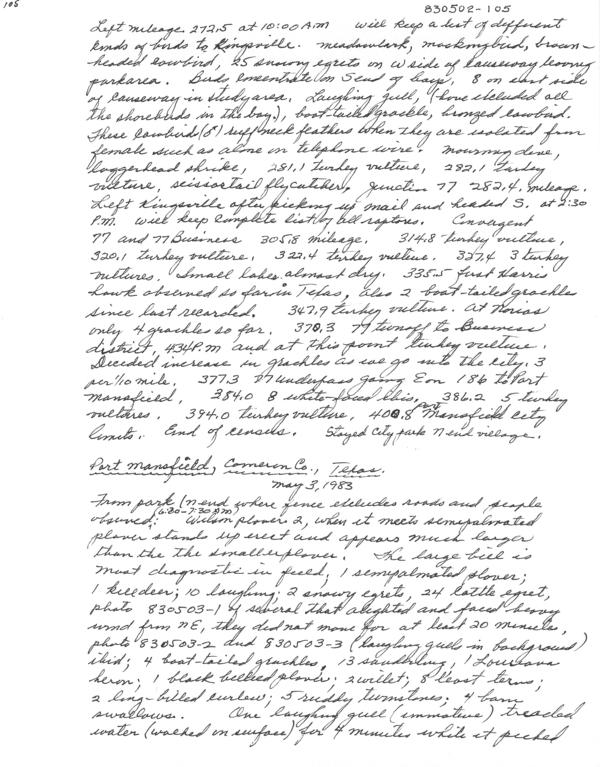 105
830502-105
Left mileage 272.5 at 10:00 A.M. will keep a list of different
kinds of birds to Kingsville. meadowlark, mockingbird, brown-
headed cowbird, 25 snowy egrets on W side of causeway leaving
park area. Birds concentrate on S end of bays, 8 on east side
of causeway in study area. Laughing gull, (have excluded all
the shorebirds in the bay.), boat-tailed grackle, bronzed cowbird.
These cowbird (♂) ruff neck feathers when they are isolated from
female such as alone on telephone wire. mourning dove,
loggerhead shrike, 281.1 turkey vulture, 282.1 turkey
vulture, scissortail flycatcher, junction 77 282.4 mileage.
Left Kingsville after picking up mail and headed S. at 2:30
P.M. will keep complete list of all raptors.
77 and 77 Business 305.8 mileage. 314.8 turkey vulture,
320.1 turkey vulture, 322.4 turkey vulture. 327.4 3 turkey
vultures. Small lakes almost dry. 335.5 first Harris
hawk observed so far in Texas, also 2 boat-tailed grackles
since last recorded. 347.9 turkey vulture. At Norias
only 4 grackles so far. 370.3 77 turnoff to Business
district, 434 P.M and at this point turkey vulture.
Decided increase in grackles as we go into the city. 3
per 1/10 mile. 377.3 77 underpass going E on 186 to Port
Mansfield, 384.0 8 white-faced Ibis, 386.2 5 turkey
vultures. 394.0 turkey vulture, 400.8 Port Mansfield city
limits. End of census. Stayed City park N end village.
Port Mansfield, Cameron Co., Texas.
May 3, 1983
From park (N end where fence excludes roads and people
6:20-7:30 AM)
observed: Wilson plover 2, when it meets semipalmated
plover stands up erect and appears much larger
than the the smaller plover. The large bill is
most diagnostic in field, 1 semipalmated plover;
1 killdeer; 10 laughing; 2 snowy egrets, 24 cattle egret,
photo 830503-1 of several that alighted and faced heavy
wind from NE, they did not move for at least 20 minutes,
photo 830503-2 and 830503-3 (laughing gulls in background)
ibid; 4 boat-tailed grackles, 13 sanderling, 1 Louisiana
heron; 1 black bellied plover; 2 willet; 8 least terns;
2 long-billed curlew; 5 ruddy turnstones; 4 barn
swallows. One laughing gull (immature) treaded
water (walked on surface) for 4 minutes while it picked